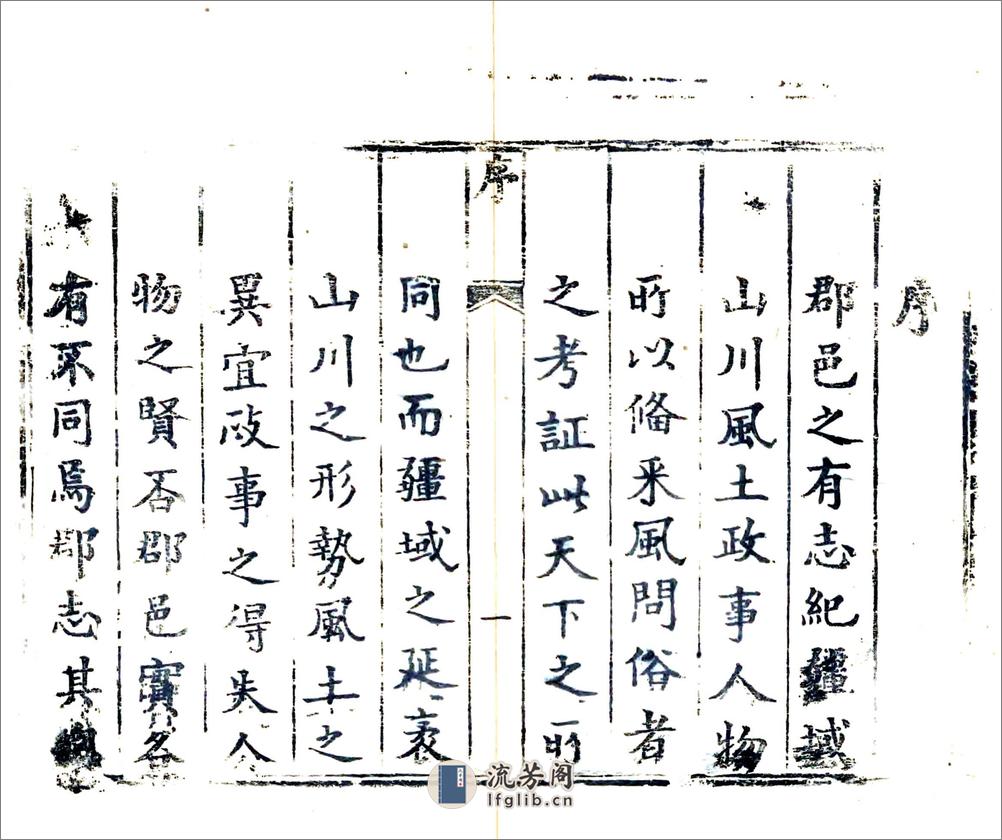 序
郡邑之有志紀疆域
山川風土政事人物
所以俻采風問俗者
之考証此天下之所
序
一
同也而疆域之延袤
山川之形勢風土之
異宜政事之得失人
物之賢否郡邑實各
有不同焉郡志其
流芳阁
lfglib.cn